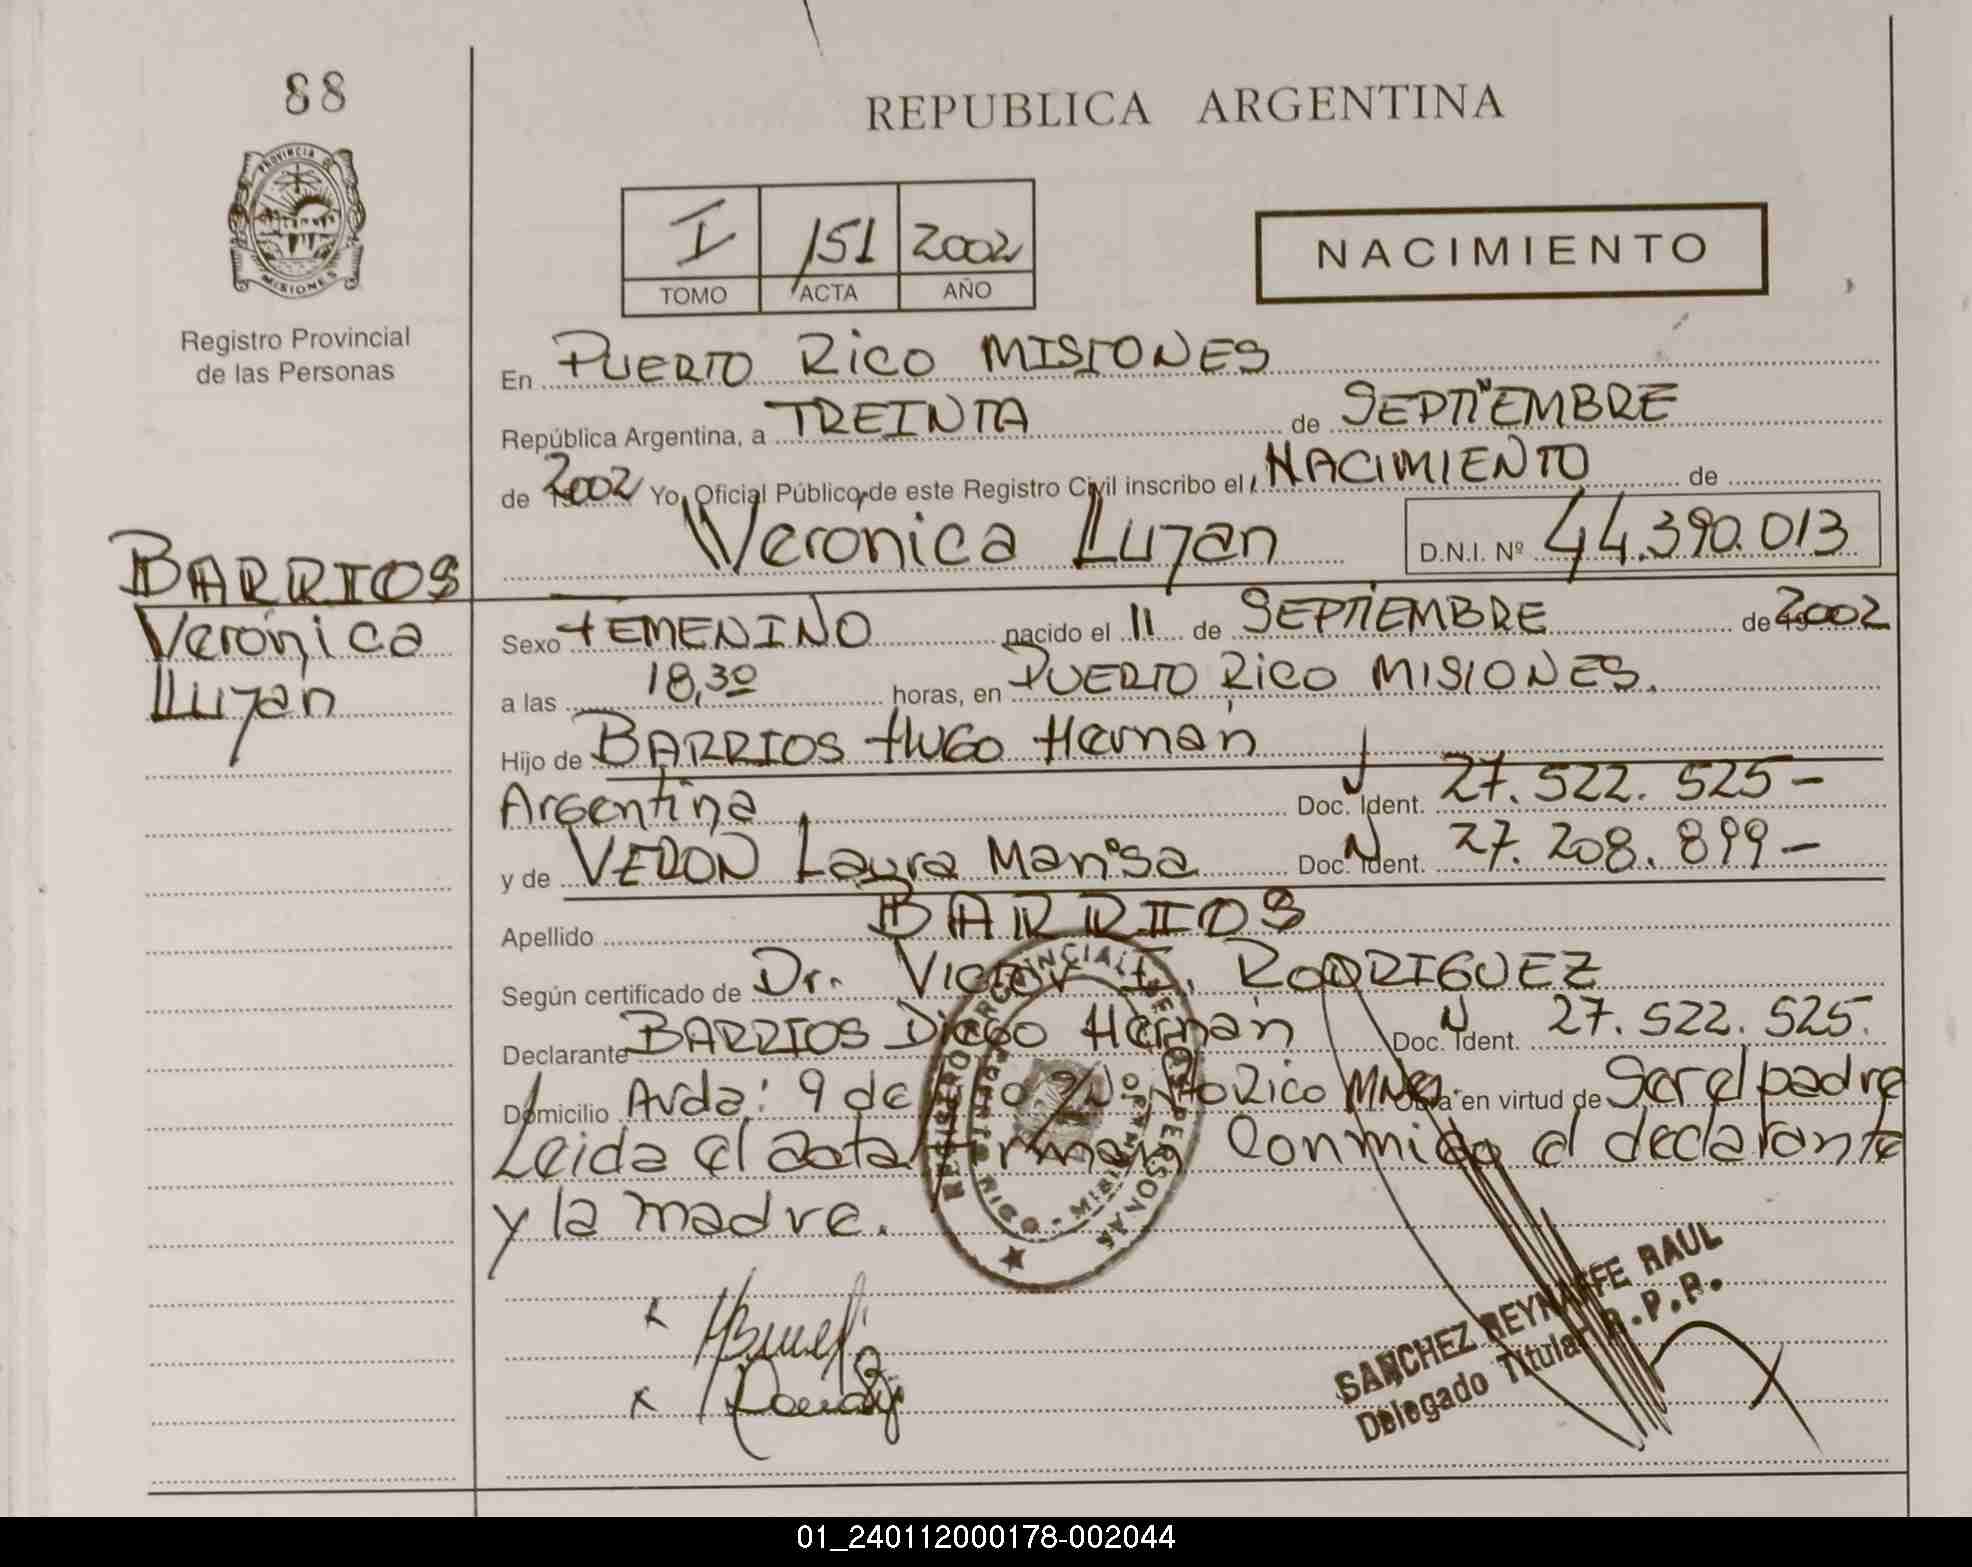 88
PROVINCIA DE
MISIONES
Registro Provincial
de las Personas
REPUBLICA ARGENTINA
I 151 2002
TOMO ACTA AÑO
NACIMIENTO
En PUERTO RICO MISIONES
República Argentina, a TREINTA de SEPTIEMBRE
de 2002 Yo, Oficial Público de este Registro Civil inscribo el NACIMIENTO de
Veronica Lujan D.N.I. Nº 44.390.013
BARRIOS
Veronica
Lujan
Sexo FEMENINO nacido el 11 de SEPTIEMBRE de 2002
a las 18,30 horas, en PUERTO RICO MISIONES.
Hijo de BARRIOS HUGO Hernan
Argentina Doc. Ident. 27.522.525-
y de VERON Laura Marisa Doc. N Ident. 27.208.899-
Apellido BARRIOS
Según certificado de Dr. Victor E. RODRIGUEZ
Declarante BARRIOS Diego Hernan Doc. N Ident. 27.522.525.
Domicilio Avda: 9 de Julio Rico Mnes Obra en virtud de Ser el padre
Leida el acta firman Conmigo el declarante
y la madre.
REGISTRO PROVINCIAL DE LAS PERSONAS
SANCHEZ REYNAFFE RAUL
Delegado Titular R.P.P.
01_240112000178-002044